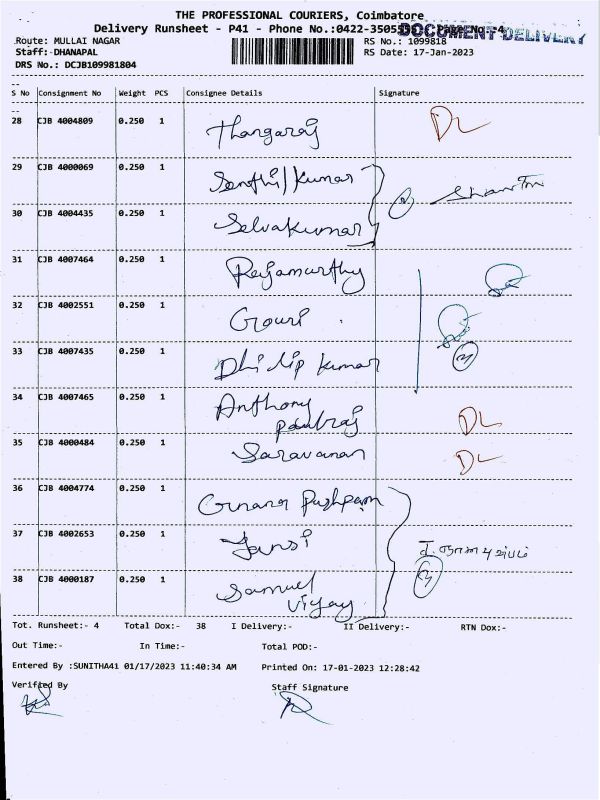 THE PROFESSIONAL COURIERS, Coimbatore
Delivery Runsheet - P41 - Phone No.:0422-3505
DOCUMENT DELIVERY
Route: MULLAI NAGAR RS No.: 1099818
Staff: DHANAPAL RS Date: 17-Jan-2023
DRS No.: DCJB109981804
S No Consignment No Weight PCS Consignee Details Signature
28 CJB 4004809 0.250 1 Thangaraj DL
29 CJB 4000069 0.250 1 Senthil kumar
30 CJB 4004435 0.250 1 Selvakumar
31 CJB 4007464 0.250 1 Rajamurthy
32 CJB 4002551 0.250 1 Gouri
33 CJB 4007435 0.250 1 Philip kumar
34 CJB 4007465 0.250 1 Anthony Paulraj DL
35 CJB 4000484 0.250 1 Saravanan DL
36 CJB 4004774 0.250 1 Gnana Pushpam
37 CJB 4002653 0.250 1 Jansi
38 CJB 4000187 0.250 1 Samuel Vijay
Tot. Runsheet:- 4 Total Dox:- 38 I Delivery:- II Delivery:- RTN Dox:-
Out Time:- In Time:- Total POD:-
Entered By :SUNITHA41 01/17/2023 11:40:34 AM Printed On: 17-01-2023 12:28:42
Verified By Staff Signature